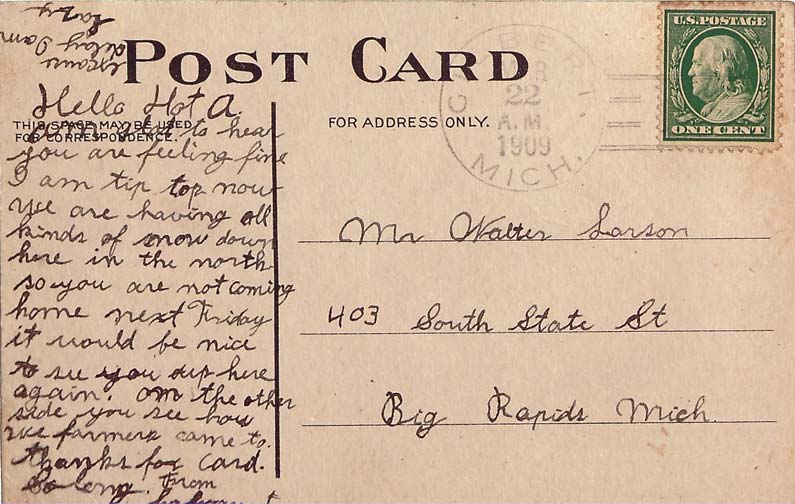 excuse
delay I am
lazy
POST CARD
THIS SPACE MAY BE USED
FOR CORRESPONDENCE.
FOR ADDRESS ONLY.
U.S. POSTAGE
ONE CENT
MAR
22
A.M.
1909
MICH.
Hello Hot A.
am glad to hear
you are feeling fine
I am tip top now
We are having all
kinds of snow down
here in the north
so you are not coming
home next Friday
it would be nice
to see you up here
again. on the other
side you see how
we farmers came to.
thanks for card.
So long. From
Mr Walter Larson
403 South State St
Big Rapids Mich.